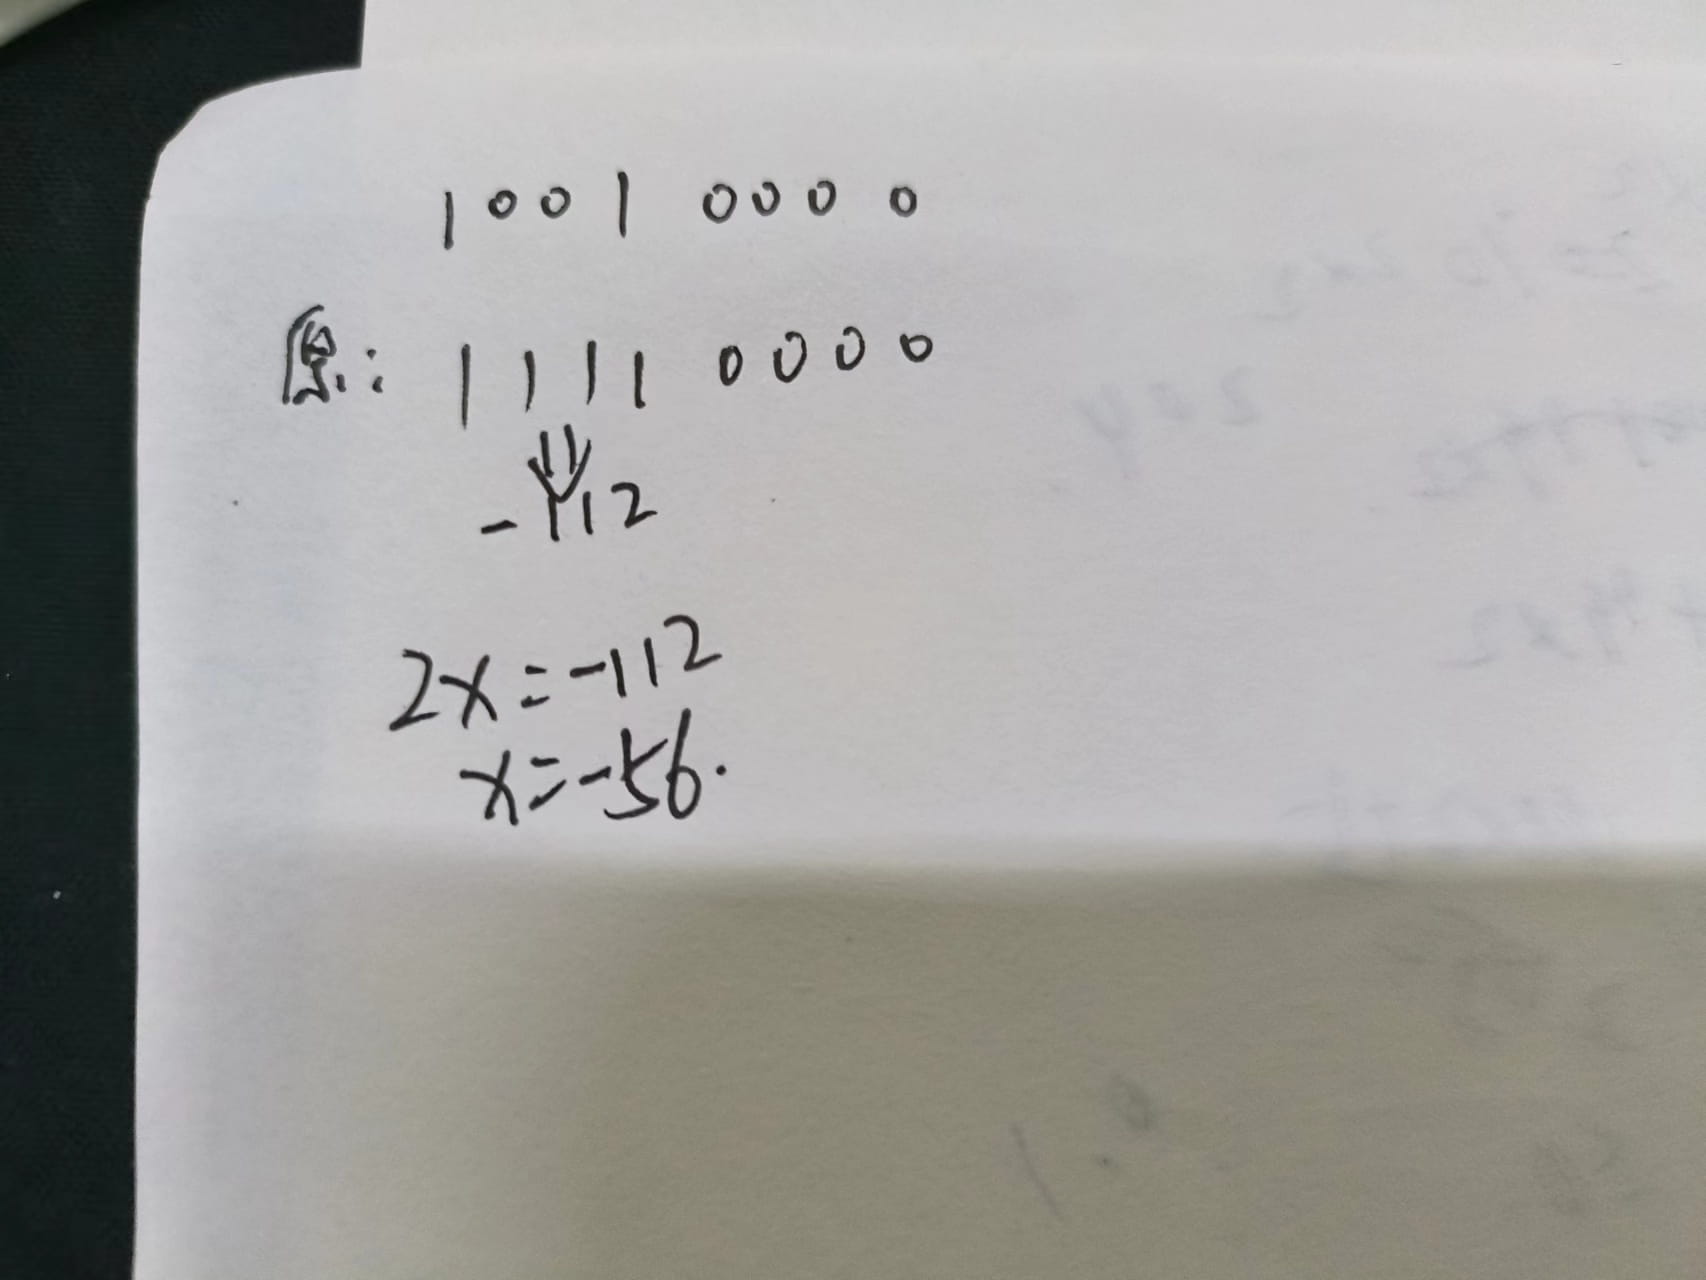 1001 0000
原: 1111 0000
-112
2x=-112
x=-56.